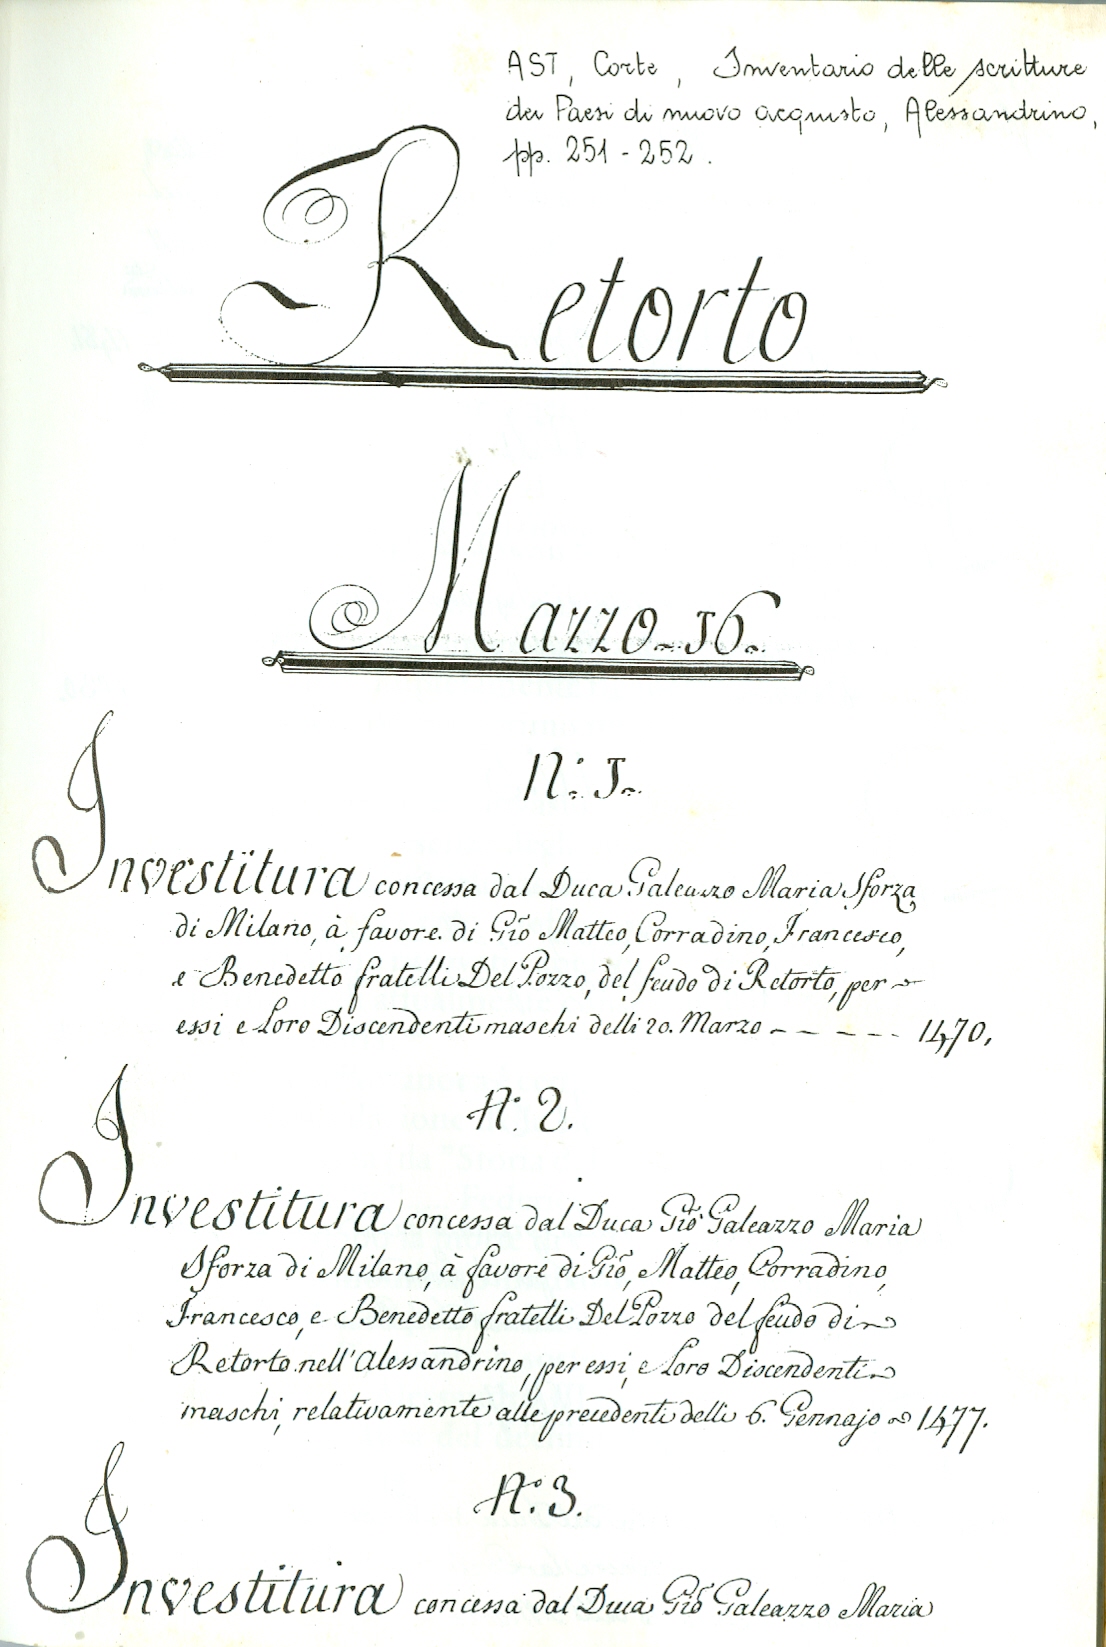 AST, Corte, Inventario delle scritture
dei Paesi di nuovo acquisto, Alessandrino,
pp. 251 - 252.
Retorto
Mazzo. 16.
N.º 1.
Investitura concessa dal Duca Galeazzo Maria Sforza
di Milano, à favore di Gio Matteo, Corradino, Francesco,
e Benedetto fratelli Del Pozzo, del feudo di Retorto, per
essi e Loro Discendenti maschi delli 20. Marzo - - - - - 1470,
N.º 2.
Investitura concessa dal Duca Gio Galeazzo Maria
Sforza di Milano, à favore di Gio, Matteo, Corradino,
Francesco, e Benedetto fratelli Del Pozzo del feudo di
Retorto nell'Alessandrino, per essi, e Loro Discendenti
maschi, relativamente alle precedenti delli 6. Gennajo 1477.
N.º 3.
Investitura concessa dal Duca Gio Galeazzo Maria